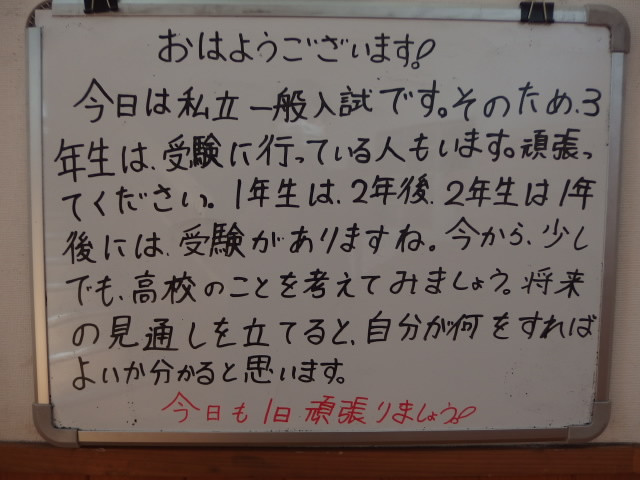 おはようございます!
今日は私立一般入試です。そのため、3
年生は、受験に行っている人もいます。頑張っ
てください。1年生は、2年後、2年生は1年
後には、受験がありますね。今から、少し
でも、高校のことを考えてみましょう。将来
の見通しを立てると、自分が何をすれば
よいか分かると思います。
今日も1日頑張りましょう!